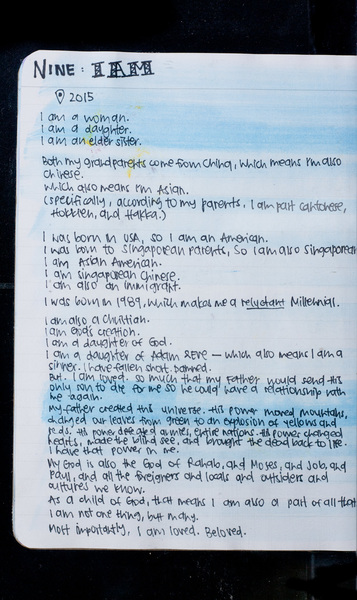 NINE: I AM
2015
I am a woman.
I am a daughter.
I am an elder sister.
Both my grandparents come from China, which means I'm also
Chinese.
which also means I'm Asian.
(specifically, according to my parents, I am part cantonese,
Hokkien, and Hakka.)
I was born in USA, so I am an American.
I was born to Singaporean parents, so I am also Singaporean
I am Asian American.
I am Singaporean Chinese.
I am also an immigrant.
I was born in 1989, which makes me a reluctant Millennial.
I am also a Christian.
I am God's creation.
I am a daughter of God.
I am a daughter of Adam & EVE — which also means I am a
sinner. I have fallen short. Damned.
But. I am loved. so much that my Father would send His
only son to die for me so he could have a relationship with
me again.
My father created this universe. His power moved mountains,
our leaves from green to an explosion of yellows and
reds. His power defeated armies, entire nations. His power changed
hearts, made the blind see, and brought the dead back to life.
I have that power in me.
My God is also the God of Rahab, and Moses, and Job, and
Paul, and all the foreigners and locals and outsiders and
cultures we know.
As a child of God, that means I am also a part of all that
I am not one thing, but many.
Most importantly, I am loved. Beloved.